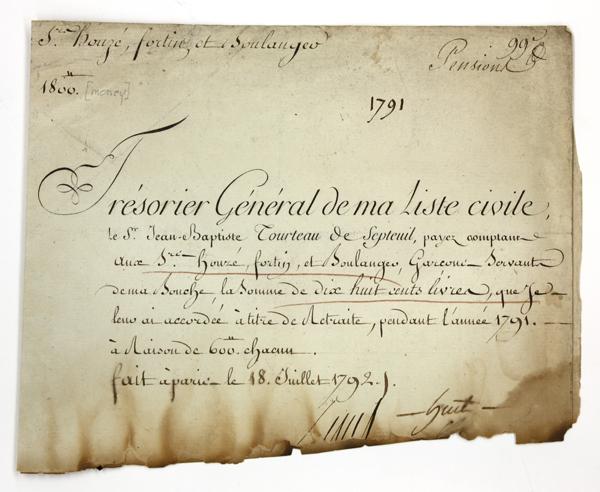 Srs houzé, fortin, et Boulanger
99e
Pensions
1800.tt [money]
1791
Trésorier Général de ma Liste civile,
le Sr. Jean-Baptiste Tourteau de Septeuil, payez comptant
aux Srs houzé, fortin, et Boulanger, Garçons-Servants
de ma Bouche, la Somme de dix huit cents livres, que je
leur ai accordée à titre de Retraite, pendant l'année 1791. —
à Raison de 600.tt chacun.
fait à paris le 18. Juillet 1792.
Louis
— huit —